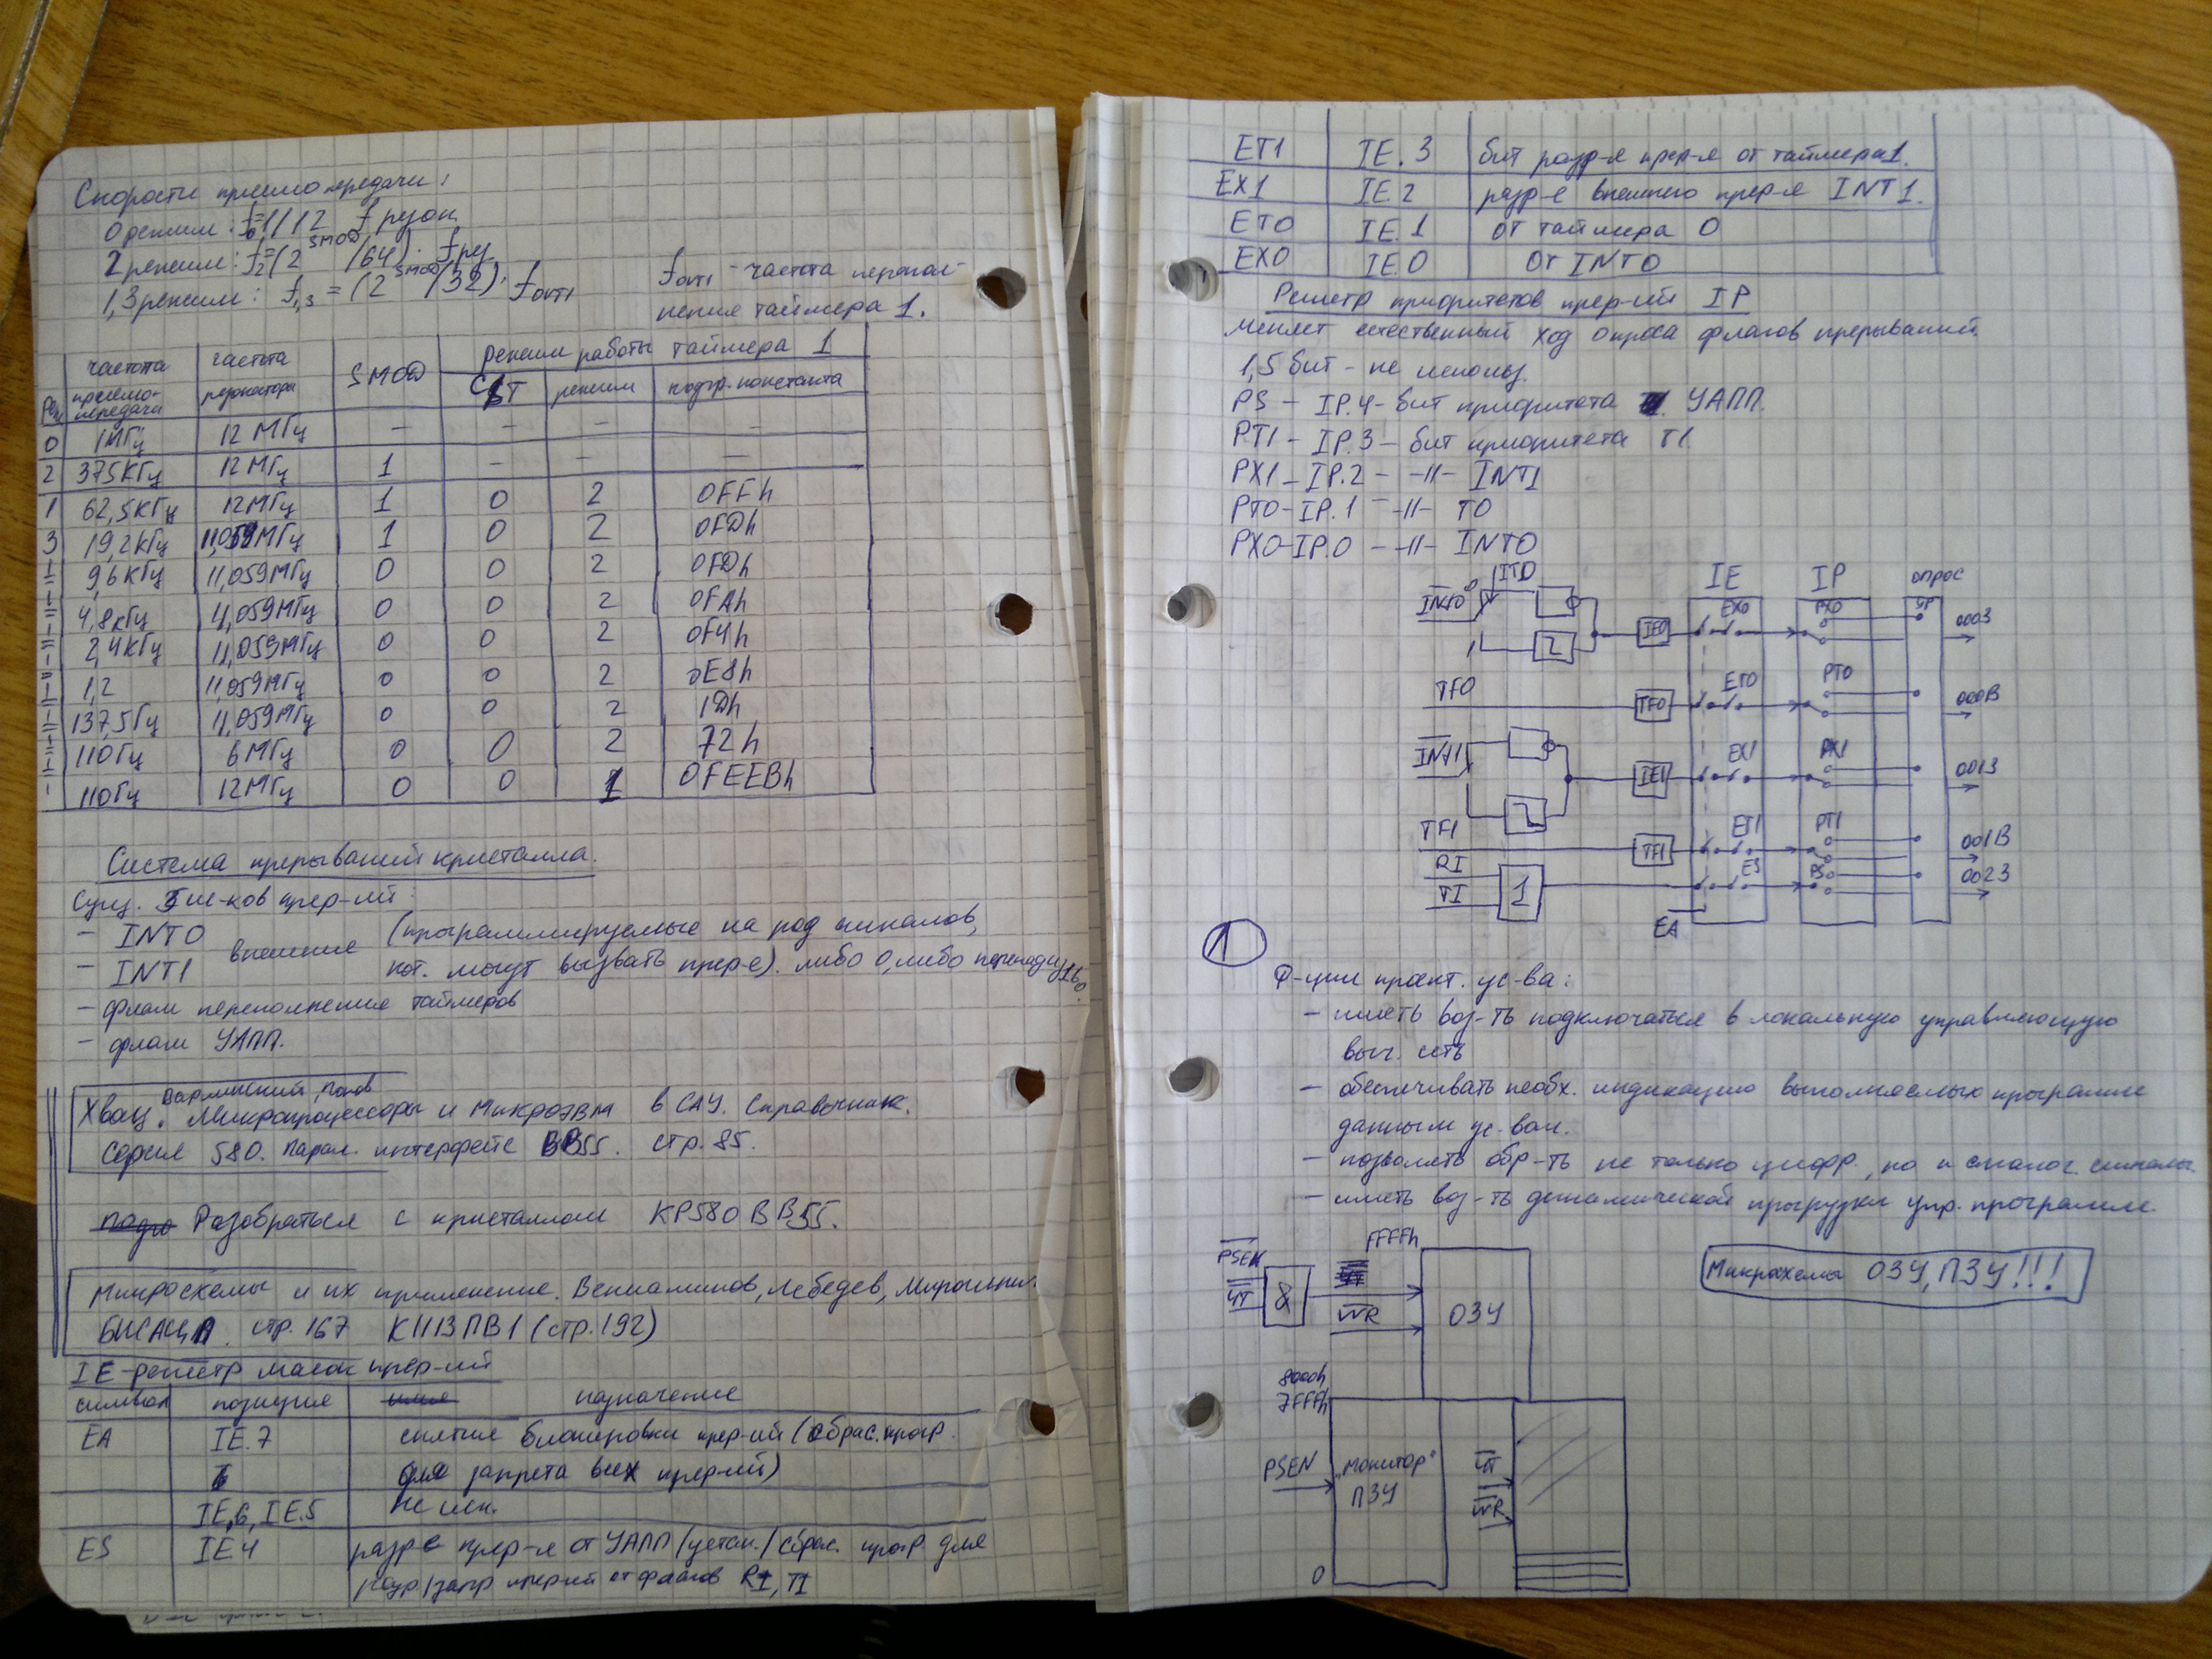 Скорости приемопередачи:
0 режим: f0=1/12 f резон
2 режим: f2=(2^SMOD/64)·fрез
1,3 режим: f1,3 = (2^SMOD/32)·fOVT1
fOVT1 - частота переполнения таймера 1.
Реж | частота приемопередачи | частота резонатора | SMOD | Режим работы таймера 1
C/T | режим | подгр. константа
0 | 1МГц | 12 МГц | – | – | – | –
2 | 375КГц | 12МГц | 1 | – | – | –
1 | 62,5КГц | 12МГц | 1 | 0 | 2 | 0FFh
3 | 19,2КГц | 11,059МГц | 1 | 0 | 2 | 0FDh
-||- | 9,6КГц | 11,059МГц | 0 | 0 | 2 | 0FDh
-||- | 4,8КГц | 11,059МГц | 0 | 0 | 2 | 0FAh
-||- | 2,4КГц | 11,059МГц | 0 | 0 | 2 | 0F4h
-||- | 1,2 | 11,059МГц | 0 | 0 | 2 | 0E8h
-||- | 137,5Гц | 11,059МГц | 0 | 0 | 2 | 1Dh
-||- | 110Гц | 6МГц | 0 | 0 | 2 | 72h
- | 110Гц | 12МГц | 0 | 0 | 1 | 0FEEBh
Система прерываний кристалла.
Сущ. 5 ис-ков прер-ий:
- INT0
- INT1
внешние (программируемые на род сигналов,
кот. могут вызвать прер-е). либо 0, либо переход из 1 в 0.
- флаги переполнения таймеров
- флаги УАПП.
Хвощ, Варлинский, Попов
Микропроцессоры и МикроЭВМ в САУ. Справочник.
Серия 580. Парал. интерфейс ВВ55. стр. 85.
Разобраться с кристаллом КР580ВВ55.
Микросхемы и их применение. Вениаминов, Лебедев,
БИС АЦП. стр. 167 К1113ПВ1 (стр. 192)
IE - регистр масок прер-ий
символ | позиция | назначение
EA | IE.7 | снятие блокировки прер-ий (сбрас. прогр.
для запрета всех прер-ий)
IE.6, IE.5 | не исп.
ES | IE4 | разр-е прер-я от УАПП /устан./сброс. прогр. для
разр/запр прер-ий от флагов RI, TI
ET1 | IE.3 | бит разр-я прер-я от таймера 1.
EX1 | IE.2 | разр-е внешнего прер-я INT1.
ET0 | IE.1 | от таймера 0
EX0 | IE.0 | от INT0
Регистр приоритетов прер-ий IP
Меняет естественный ход опроса флагов прерываний.
1,5 бит - не использ.
PS – IP.4 - бит приоритета УАПП.
PT1 – IP.3 – бит приоритета T1
PX1 – IP.2 – -||- INT1
PT0 – IP.1 – -||- T0
PX0 – IP.0 – -||- INT0
IE IP опрос
INT0 0 IT0 1 IE0 EX0 PX0 0003
TF0 TF0 ET0 PT0 000B
INT1 IE1 EX1 PX1 0013
TF1 TF1 ET1 PT1 001B
RI TI 1 ES PS 0023
EA
1
Ф-ции проект. ус-ва:
- иметь воз-ть подключаться в локальную управляющую
выч. сеть
- обеспечивать необх. индикацию выполняемых программ
данным ус-вом.
- позволять обр-ть не только цифр., но и аналог. сигналы.
- иметь воз-ть динамической прогрузки упр. программ.
PSEN
ЧТ
&
FFFFh
WR
ОЗУ
Микросхемы ОЗУ, ПЗУ!!!
8000h
7FFFh
PSEN
„Монитор“
ПЗУ
ЧТ
WR
0